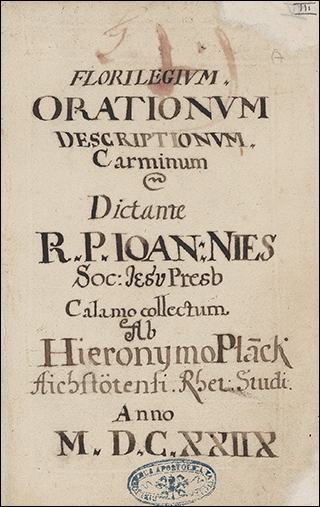 III
A
FLORILEGIVM.
ORATIONVM
DESCRIPTIONVM.
Carminum
Dictante
R. P. IOAN: NIES
Soc: Jesv Presb
Calamo collectum
Ab
Hieronymo Plāck
Aichstötensi. Rhet: Studi.
Anno
M. D.C. XXIIX